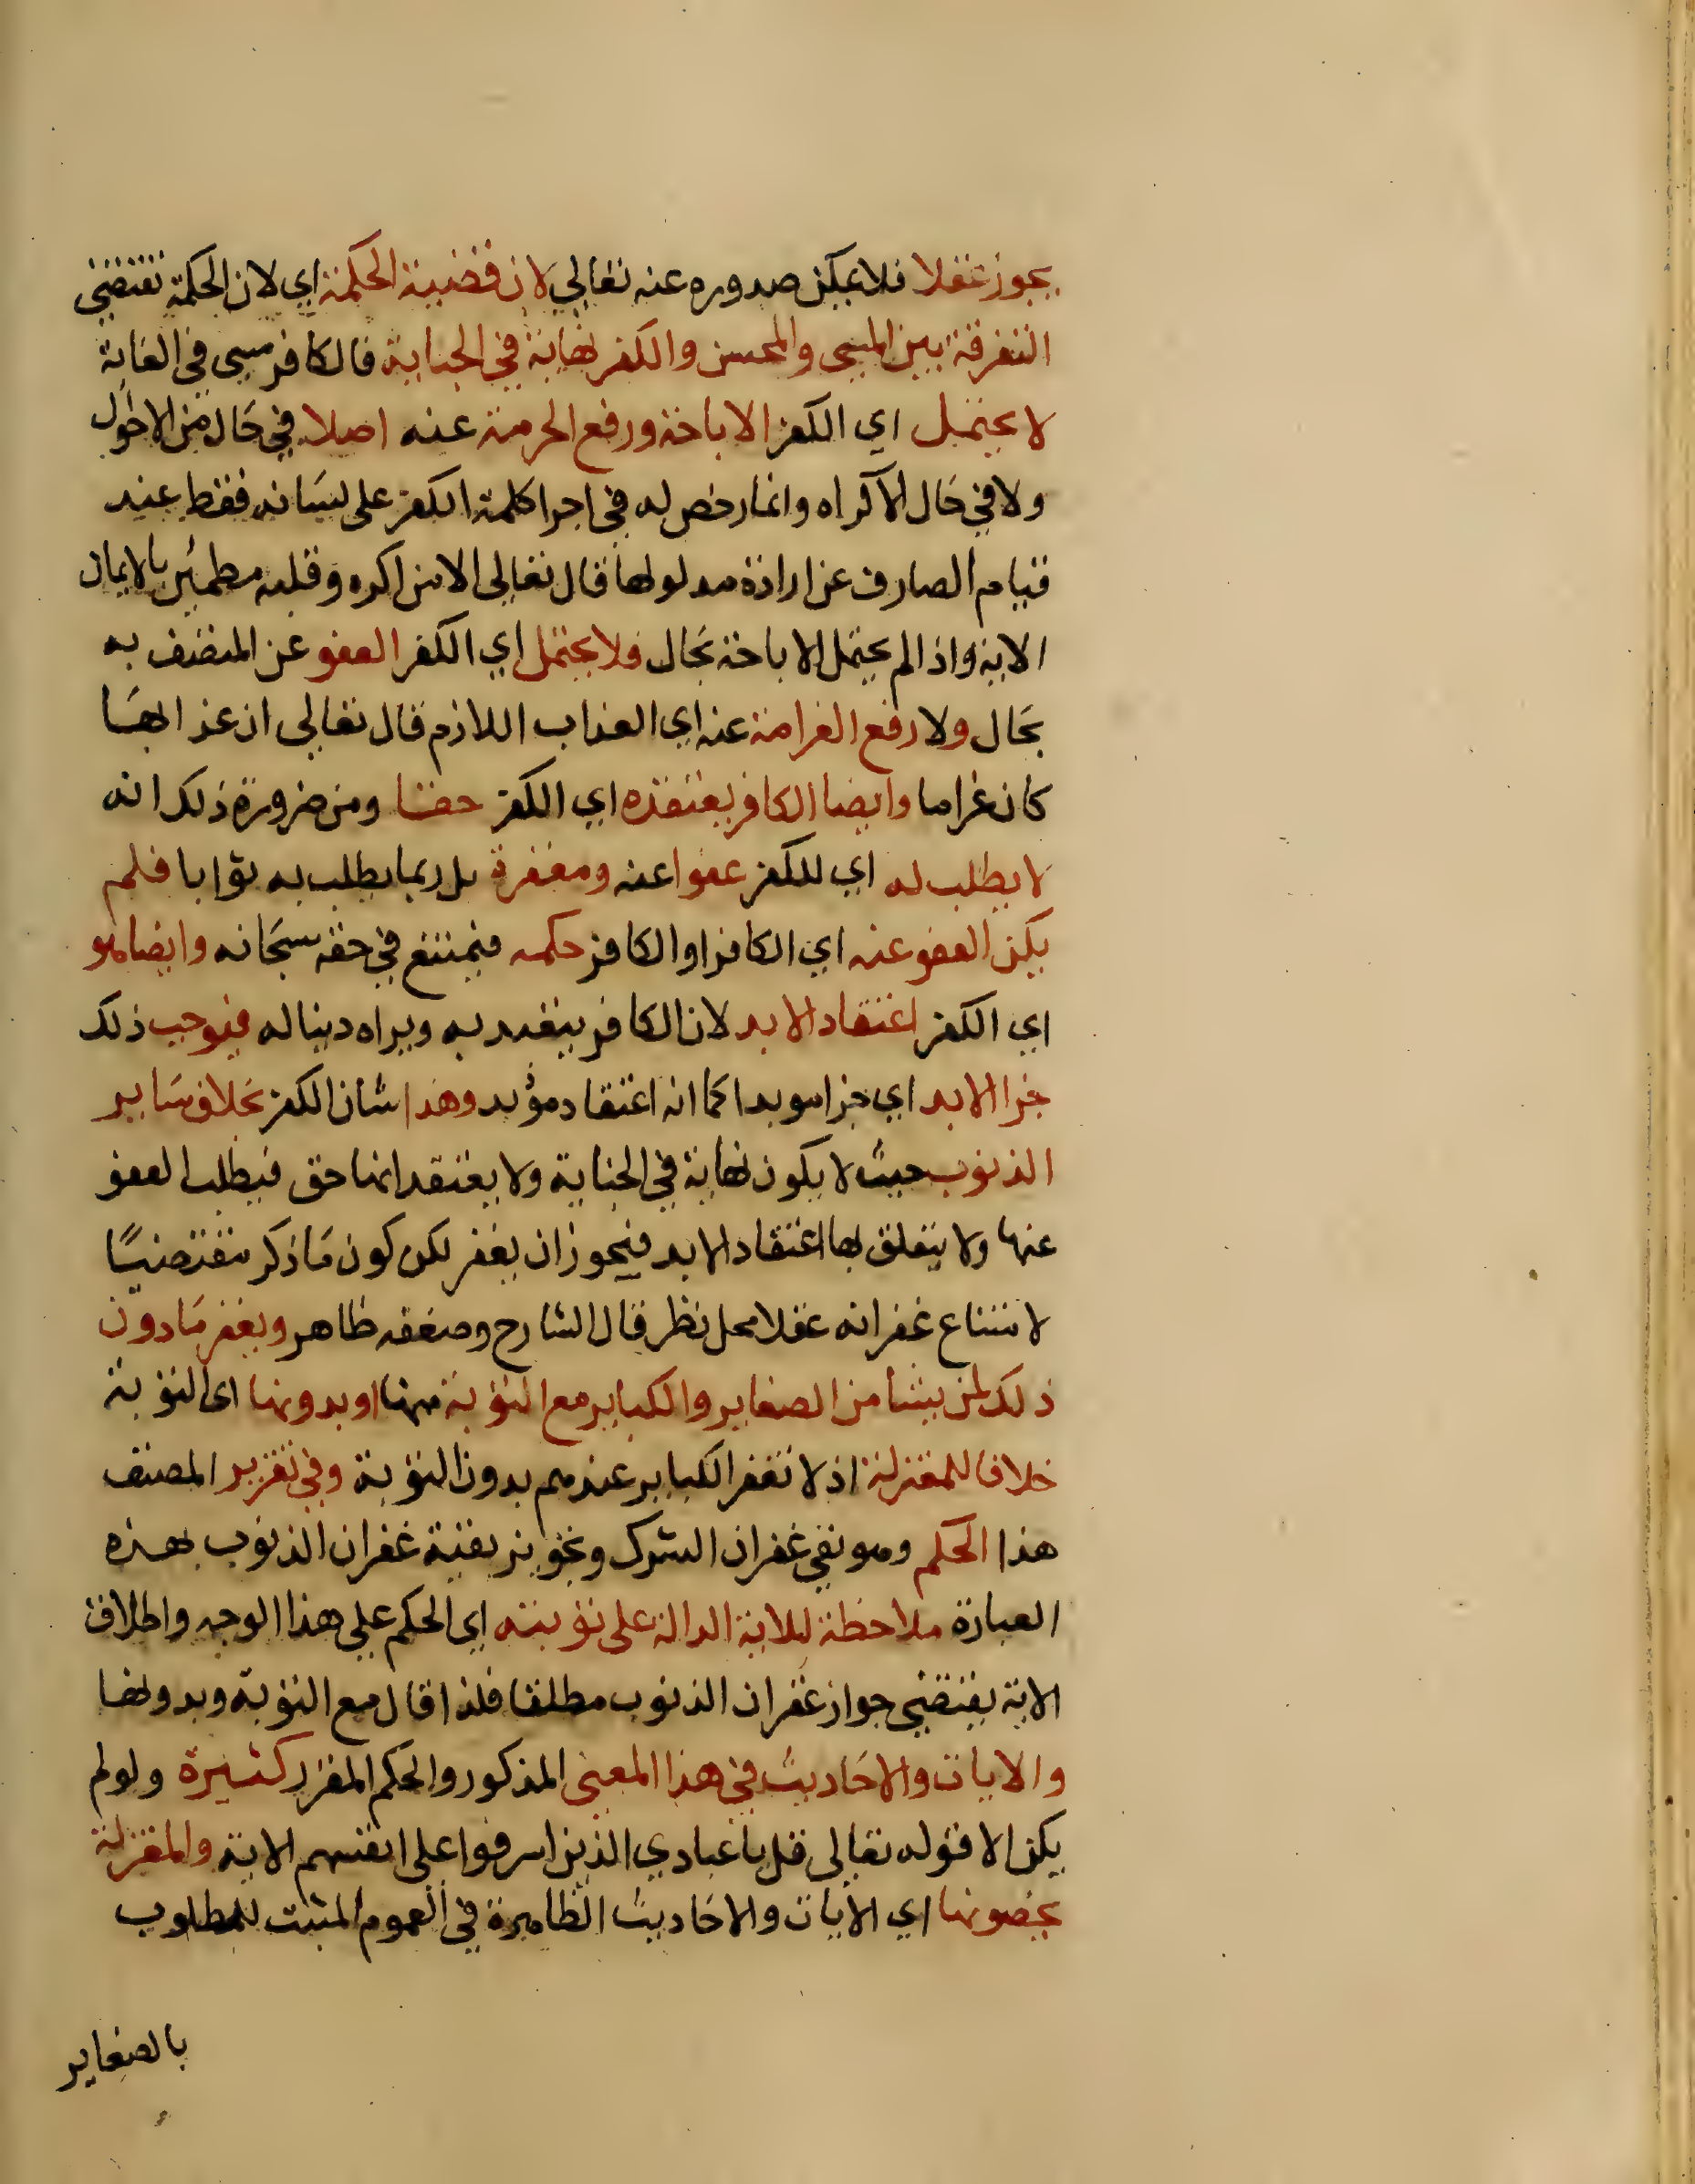 يجوز عقلا فلا يمكن صدوره عنه تعالي لان قضية الحكمة اي لان الحكمة تقتضي
التفرقة بين المسي والمحسن والكفر نهاية في الجناية فالكافر مسي في الغاية
لا يحتمل اي الكفر الاباحة ورفع الحرمة عنه اصلا في حال من الاحوال
ولا في حال الاكراه وانما رخص له في اجرا كلمة الكفر على لسانه فقط عند
قيام الصارف عن ارادة مدلولها قال تعالى الا من اكره وقلبه مطمئن بالايمان
الاية واذا لم يحتمل الاباحة بحال فلا يحتمل اي الكفر العفو عن المتصف به
بحال ولا رفع الغرامة عنه اي العذاب اللازم قال تعالى ان عذابها
كان غراما وايضا الكافر يعتقده اي الكفر حقا ومن ضرورة ذلك انه
لا يطلب له اي للكفر عفوا عنه ومغفرة بل ربما يطلب به ثوابا فلم
يكن العفو عنه اي الكافر او الكافر حكمه فيمتنع في حقه سبحانه وايضا هو
اي الكفر اعتقاد الابد لان الكافر يتعبد به ويراه دينا له فيوجب ذلك
جزا الابد اي جزا موبدا كما انه اعتقاد مؤبد وهذا شان الكفر بخلاف ساير
الذنوب حيث لا يكون نهاية في الجناية ولا يعتقد انها حق فيطلب العفو
عنها ولا يتعلق بها اعتقاد الابد فيجوز ان يغفر لكن كون ما ذكر مقتضيا
لامتناع غفرانه عقلا محل نظر قال الشارح وضعفه ظاهر ويغفر ما دون
ذلك لمن يشا من الصغاير والكباير مع التوبة منها او بدونها اي التوبة
خلافا للمعتزلة اذ لا تغفر الكباير عندهم بدون التوبة وفي تقرير المصنف
هذا الحكم وهو نفي غفران الشرك وتجويز بقية غفران الذنوب بهذه
العبارة ملاحظة للاية الدالة على ثوبته اي الحكم علي هذا الوجه واطلاق
الاية يقتضي جواز غفران الذنوب مطلقا فلذا قال مع التوبة وبدونها
والايات والاحاديث في هذا المعنى المذكور والحكم المقرر كثيرة ولو لم
يكن الا قوله تعالى قل يا عبادي الذين اسرفوا على انفسهم الاية والمعتزلة
يخصونها اي الايات والاحاديث الظاهرة في العموم المثبت للمطلوب
بالصغاير